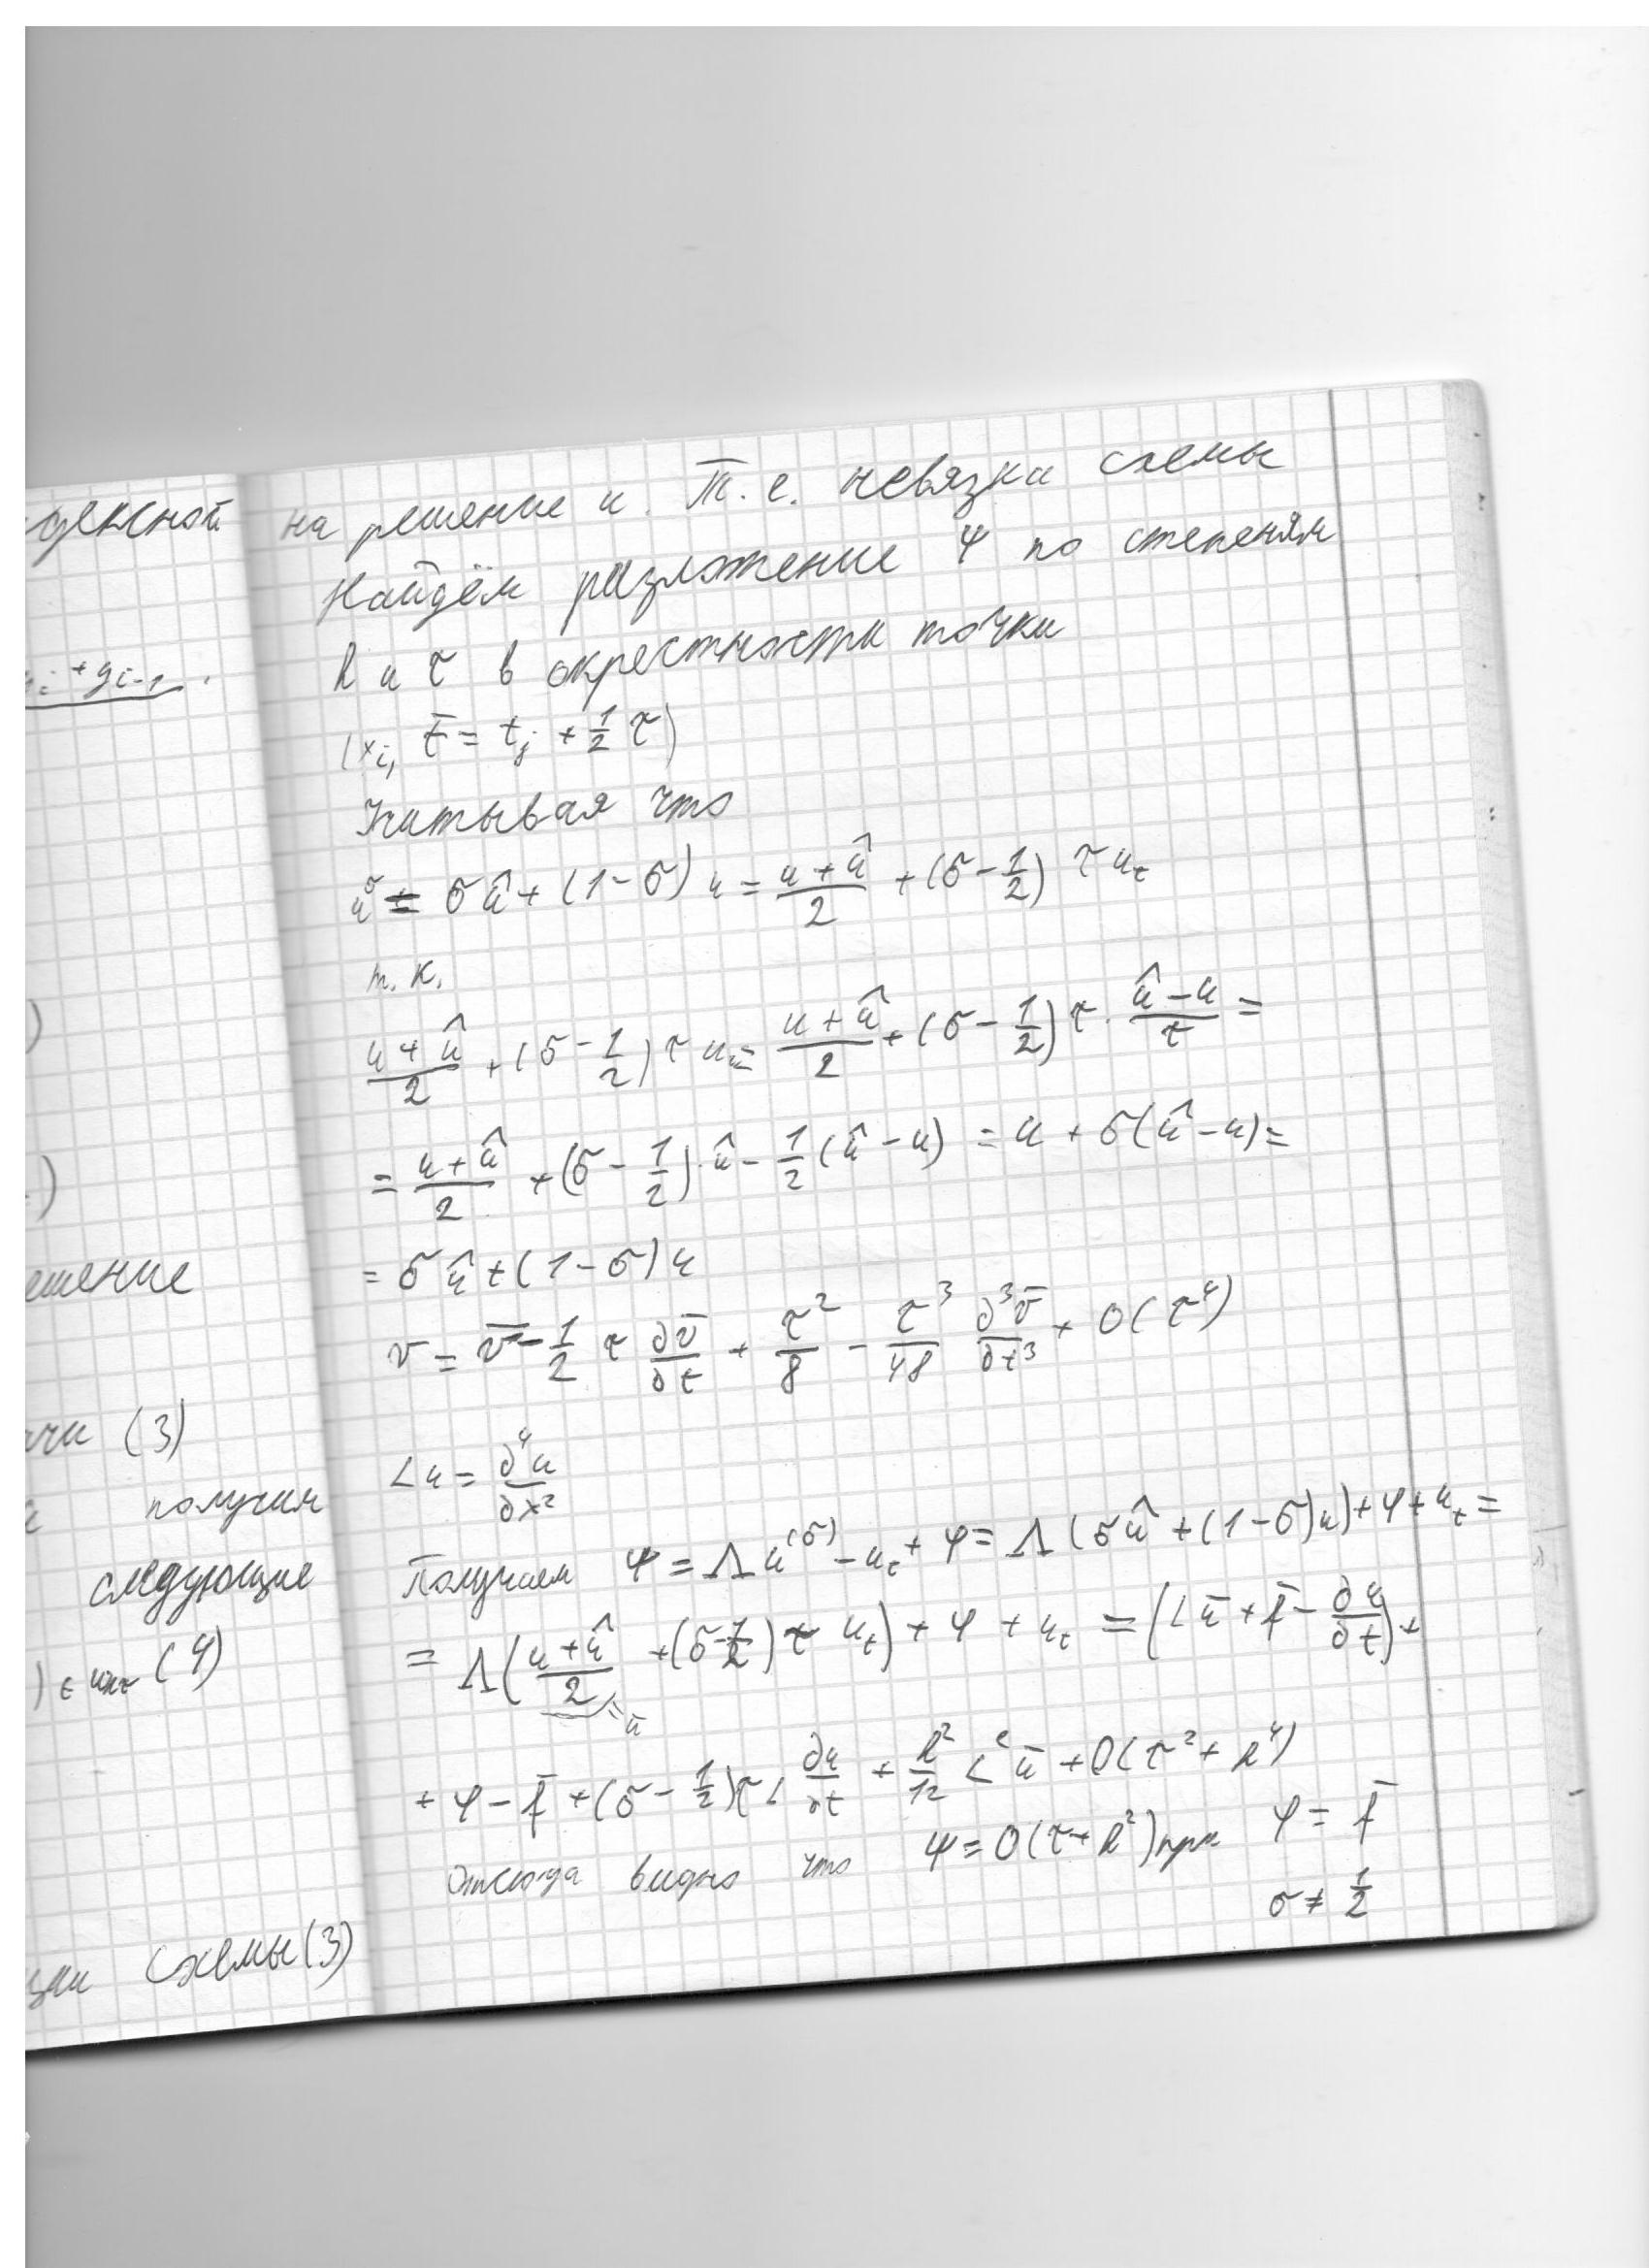 дексной
gᵢ₋₁.
)
)
ешение
чи (3)
получим
следующие
(4)
схемы (3)
на решение u. Т.е. невязка схемы
Найдём разложение ψ по степеням
h и τ в окрестности точки
(xᵢ, t̄ = tⱼ + 1/2 τ)
Учитывая что
u^σ = σû + (1-σ) u = (u + û)/2 + (σ - 1/2) τ uₜ
т.к.
(u + û)/2 + (σ - 1/2) τ uₜ = (u + û)/2 + (σ - 1/2) τ · (û - u)/τ =
= (u + û)/2 + (σ - 1/2) · û - 1/2 (û - u) = u + σ(û - u) =
= σû + (1-σ) u
v = v̄ - 1/2 τ ∂v̄/∂t + τ²/8 - τ³/48 ∂³v̄/∂t³ + O(τ⁴)
Lu = ∂⁴u/∂x²
Получаем ψ = Λu^(σ) - uₜ + φ = Λ(σû + (1-σ)u) + φ + uₜ =
= Λ((u + û)/2 + (σ - 1/2) τ uₜ) + φ + uₜ = (Lū + f̄ - ∂u/∂t) +
= ū
+ φ - f̄ + (σ - 1/2)τL ∂u/∂t + h²/12 L²ū + O(τ² + h⁴)
Отсюда видно что ψ = O(τ + h²) при φ = f̄
σ ≠ 1/2